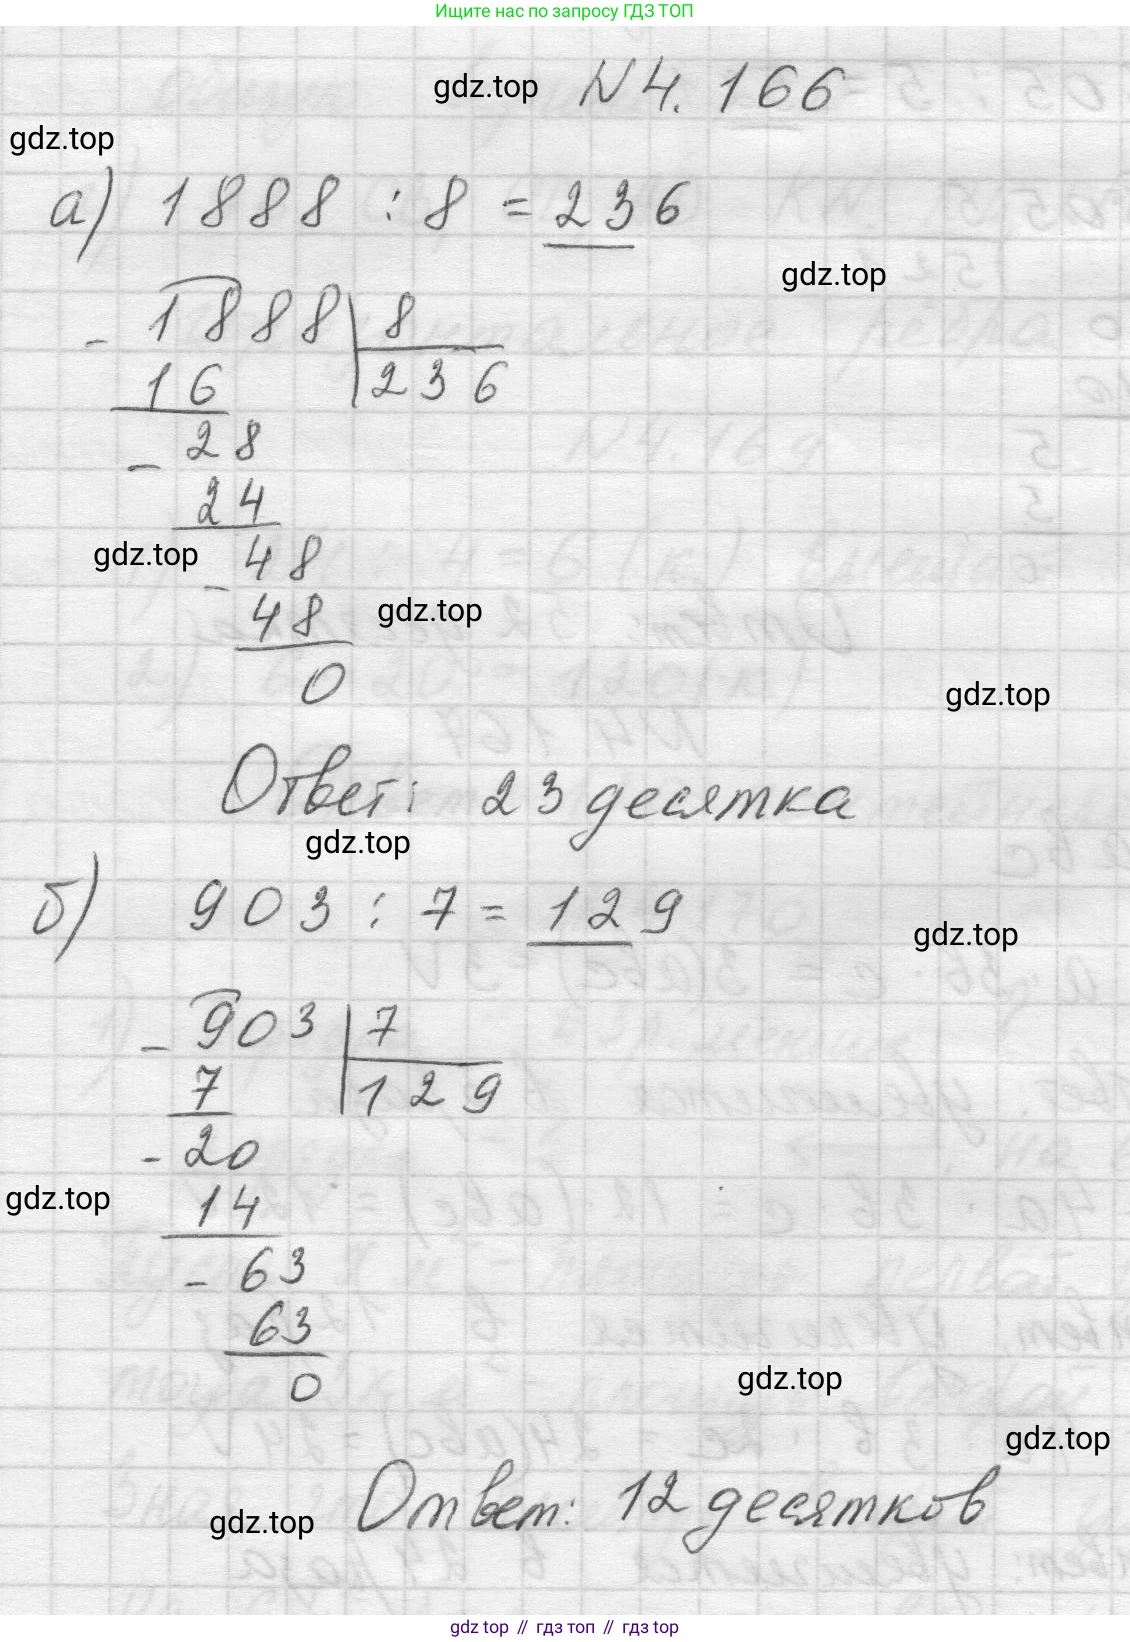 Ищите нас по запросу ГДЗ ТОП
gdz.top N 4. 166
gdz.top
а) 1888 : 8 = 236
gdz.top
- 1888 | 8
16 236
- 28
24
gdz.top - 48
48 gdz.top
0
gdz.top
Ответ: 23 десятка
gdz.top
б) 903 : 7 = 129
gdz.top
- 903 | 7
7 129
- 20
gdz.top 14
- 63
63
0
gdz.top
gdz.top
gdz.top Ответ: 12 десятков
gdz top // гдз топ // гдз top